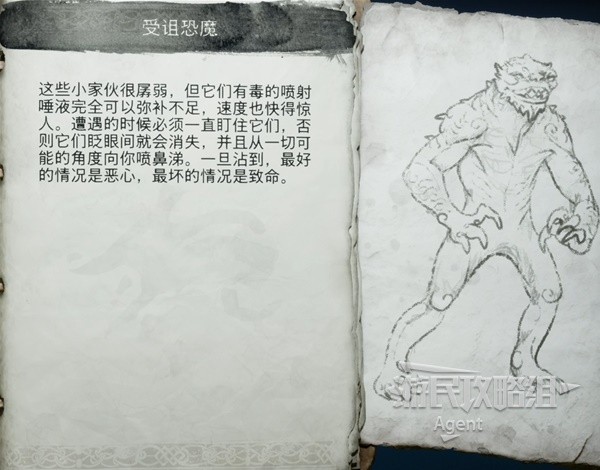 受诅恐魔
这些小家伙很孱弱，但它们有毒的喷射
唾液完全可以弥补不足，速度也快得惊
人。遭遇的时候必须一直盯住它们，否
则它们眨眼间就会消失，并且从一切可
能的角度向你喷鼻涕。一旦沾到，最好
的情况是恶心，最坏的情况是致命。
游民攻略组
Agent